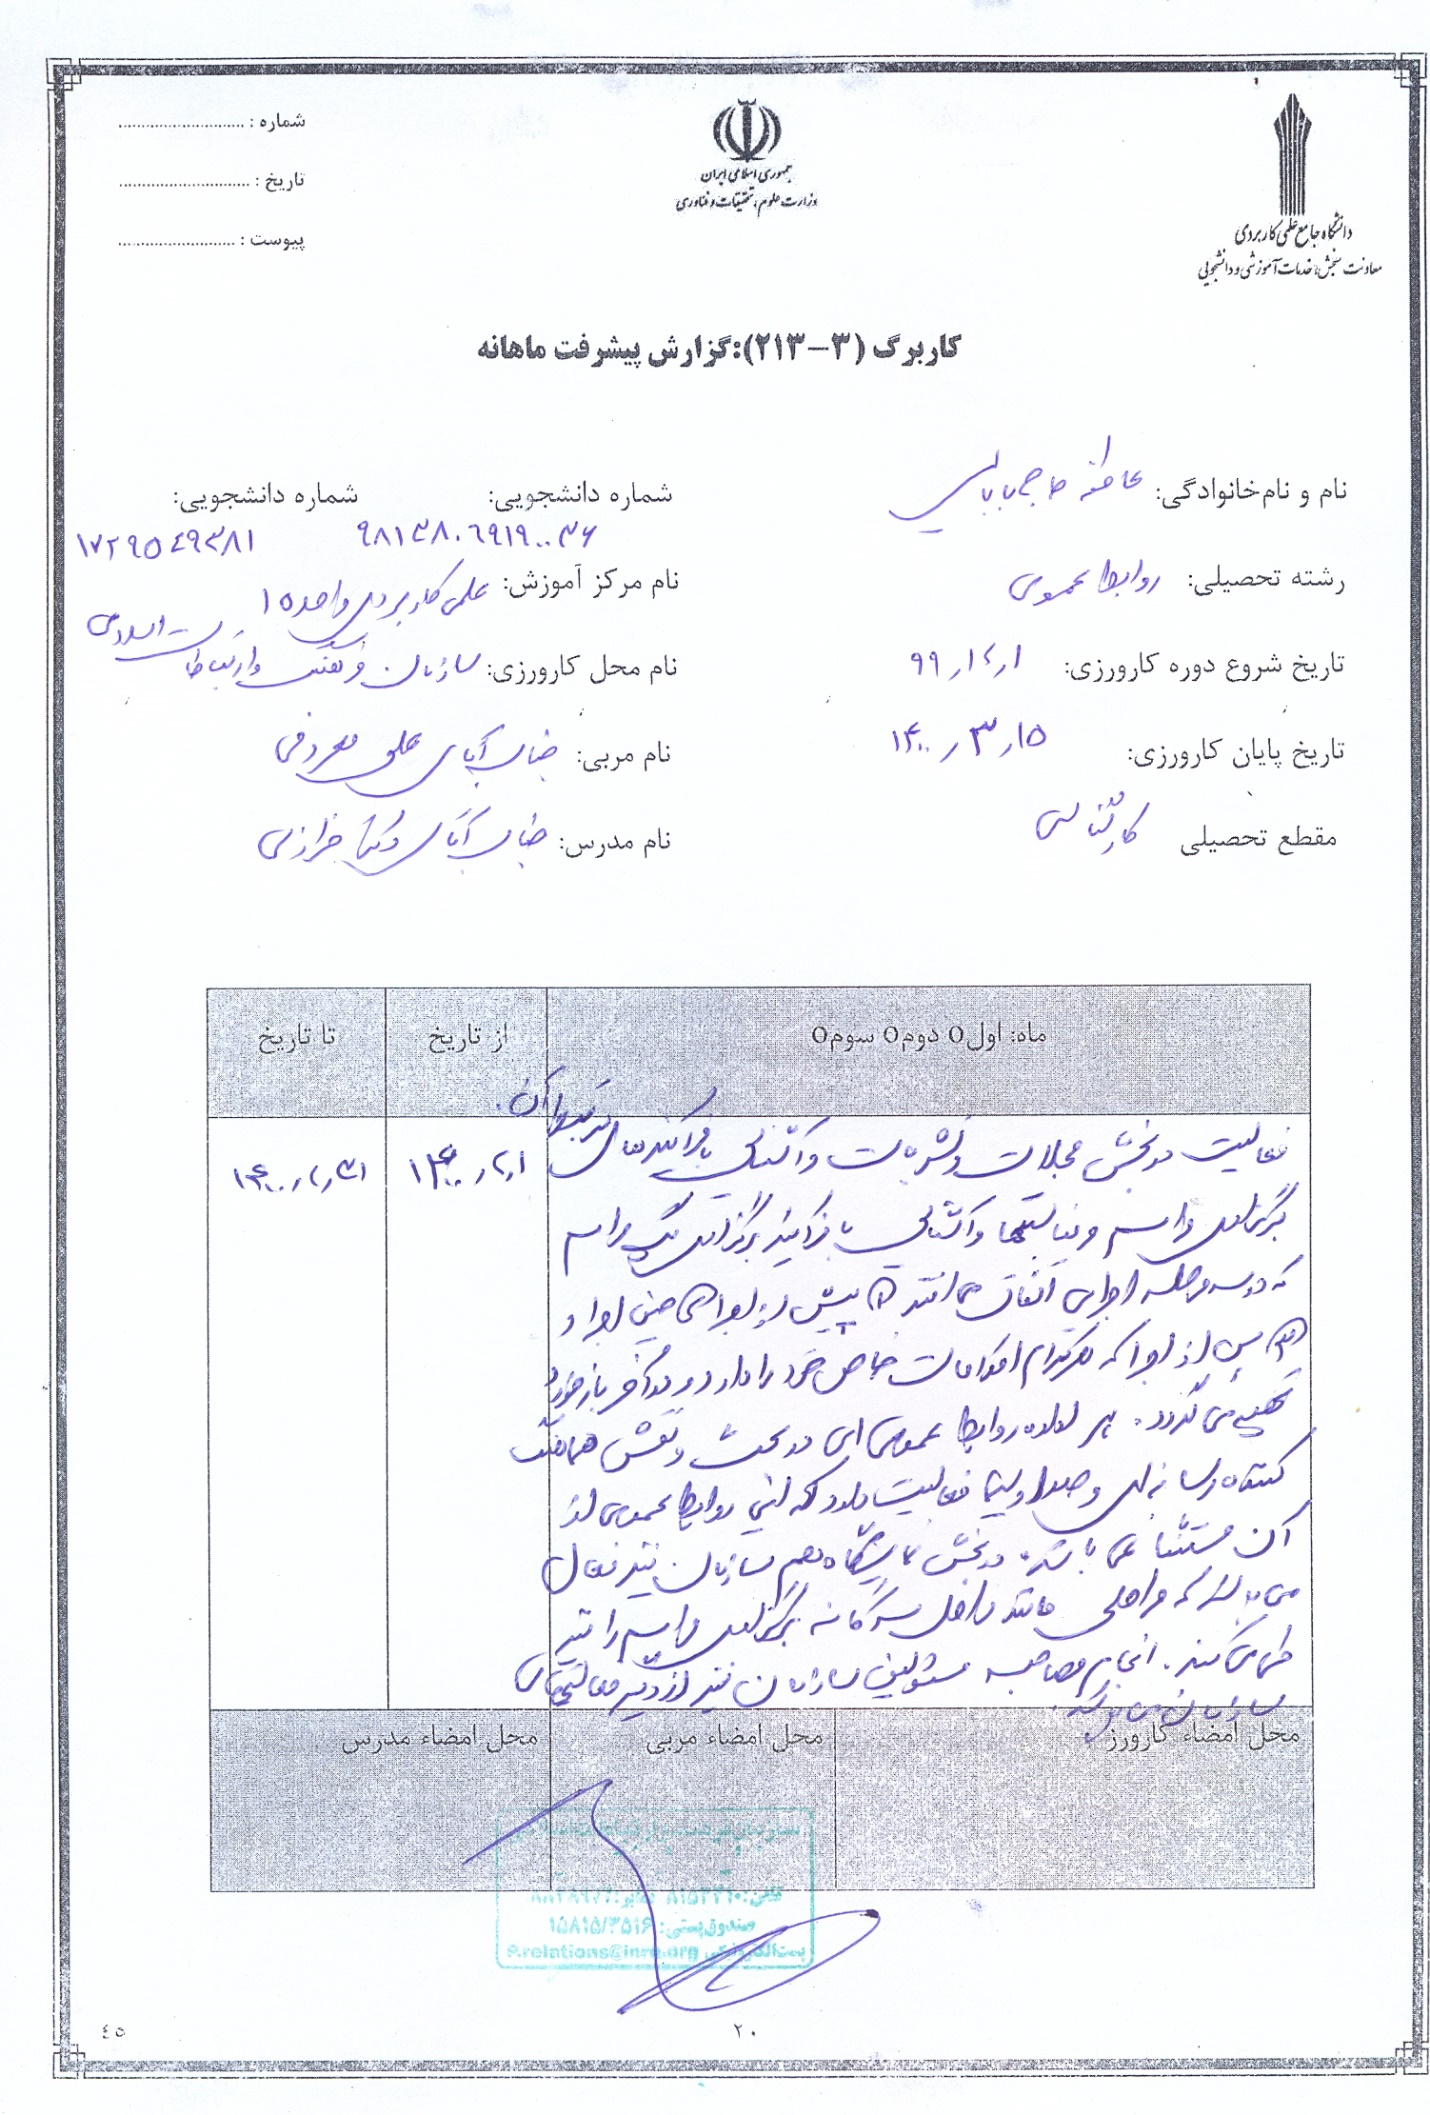 شماره : ............................
تاریخ : ............................
پیوست : ............................
جمهوری اسلامی ایران
وزارت علوم، تحقیقات و فناوری
دانشگاه جامع علمی کاربردی
معاونت سنجش، خدمات آموزشی و دانشجویی
کاربرگ (۳–۲۱۳):گزارش پیشرفت ماهانه
نام و نام‌خانوادگی: عاطفه حاجی بابایی
شماره دانشجویی: شماره دانشجویی:
رشته تحصیلی: روابط عمومی
نام مرکز آموزش: علمی کاربردی واحد ۱۵
تاریخ شروع دوره کارورزی: ۹۹٫۱۲٫۱
نام محل کارورزی: سازمان فرهنگ و ارتباطات اسلامی
تاریخ پایان کارورزی: ۱۴۰۰٫۳٫۱۵
نام مربی: جناب آقای علی معروفی
مقطع تحصیلی کارشناسی
نام مدرس: جناب آقای دکتر خرازی
ماه: اولO دومO سومO
از تاریخ
تا تاریخ
فعالیت در بخش مجلات و نشریات و آشنایی با فرآیندهای مرتبط آن.
۱۴۰۰٫۲٫۱
۱۴۰۰٫۲٫۳۱
برگزاری مراسم و فعالیتها و آشنایی با فرآیند برگزاری یک مراسم
که در سه مرحله اجرایی اتفاق می افتد ۱) پیش از اجرا ۲) حین اجرا و
۳) پس از اجرا که هرکدام اقدامات خاص خود را دارد و در آخر بازخورد
تهیه می گردد. هر اداره روابط عمومی ای در بحث و نقش هماهنگ
کننده رسانه ای و صدا و سیما فعالیت دارد که این روابط عمومی از
آن مستثنا نمی باشد. در بخش نمایشگاه هم سازمان نیز فعال
می باشد که مراحلی مانند مراحل سه گانه برگزاری مراسم را نیز
طی می کند. انجام مصاحبه مسئولین سازمان نیز از دیگر فعالیتهای
سازمان می باشد.
محل امضاء کارورز
محل امضاء مربی
محل امضاء مدرس
سازمان فرهنگ و ارتباطات اسلامی
صندوق پستی: ۱۵۸۱۵/۳۵۱۶
پست الکترونیکی
۲۰
٤٥